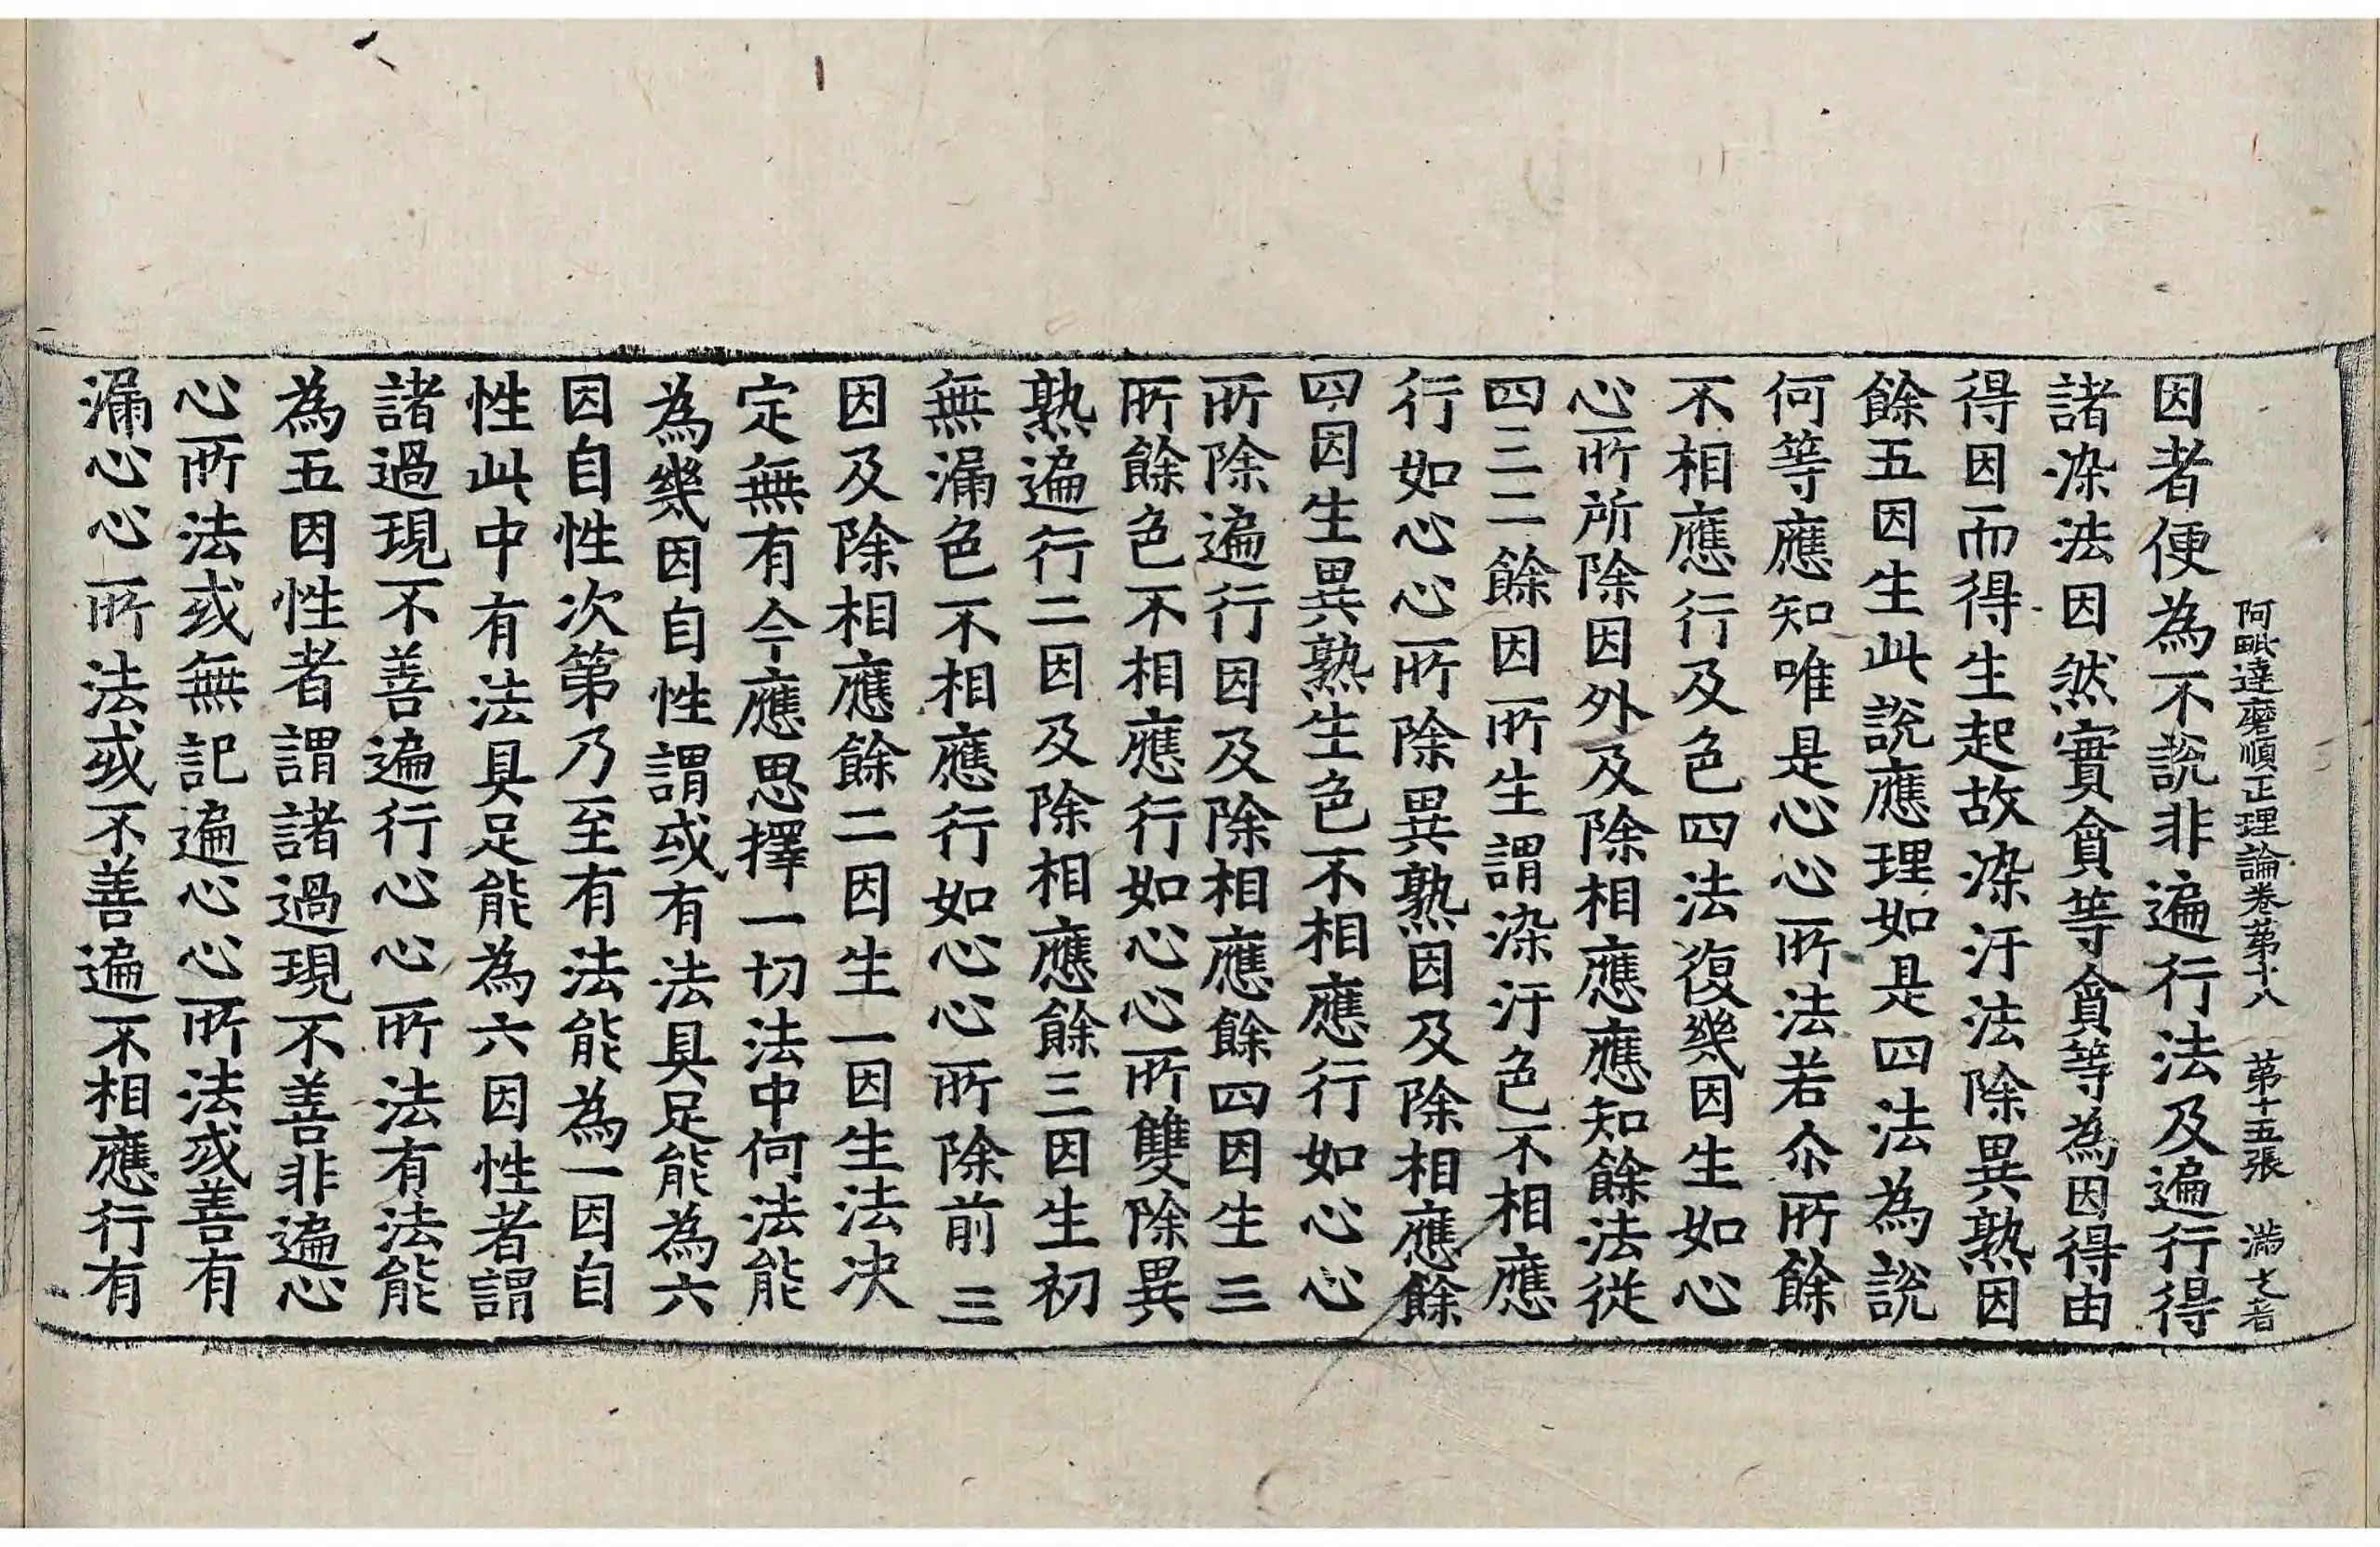 阿毗達磨順正理論卷第十八　第十五張　满
因者便為不說非遍行法及遍行得
諸染法因然實貪等貪等為因得由
得因而得生起故染汙法除異熟因
餘五因生此說應理如是四法為說
何等應知唯是心心所法若尒所餘
不相應行及色四法復幾因生如心
心所所除因外及除相應應知餘法從
四三二餘因所生謂染汙色不相應
行如心心所除異熟因及除相應餘
四因生異熟生色不相應行如心心
所除遍行因及除相應餘四因生三
所餘色不相應行如心心所雙除異
熟遍行二因及除相應餘三因生初
無漏色不相應行如心心所除前三
因及除相應餘二因生一因生法決
定無有今應思擇一切法中何法能
為幾因自性謂或有法具足能為六
因自性次第乃至有法能為一因自
性此中有法具足能為六因性者謂
諸過現不善遍行心心所法有法能
為五因性者謂諸過現不善非遍心
心所法或無記遍心心所法或善有
漏心心所法或不善遍不相應行有